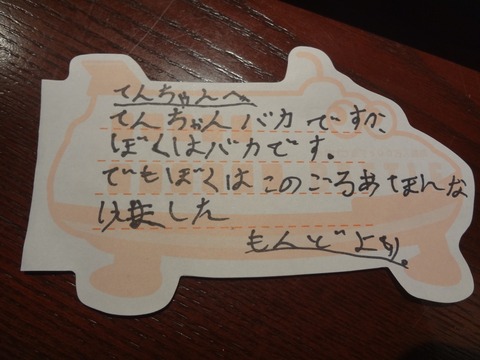 てんちゃんへ
てんちゃんバカですか、
ぼくはバカです。
でもぼくはこのごろあほんな
りました
もんどより。